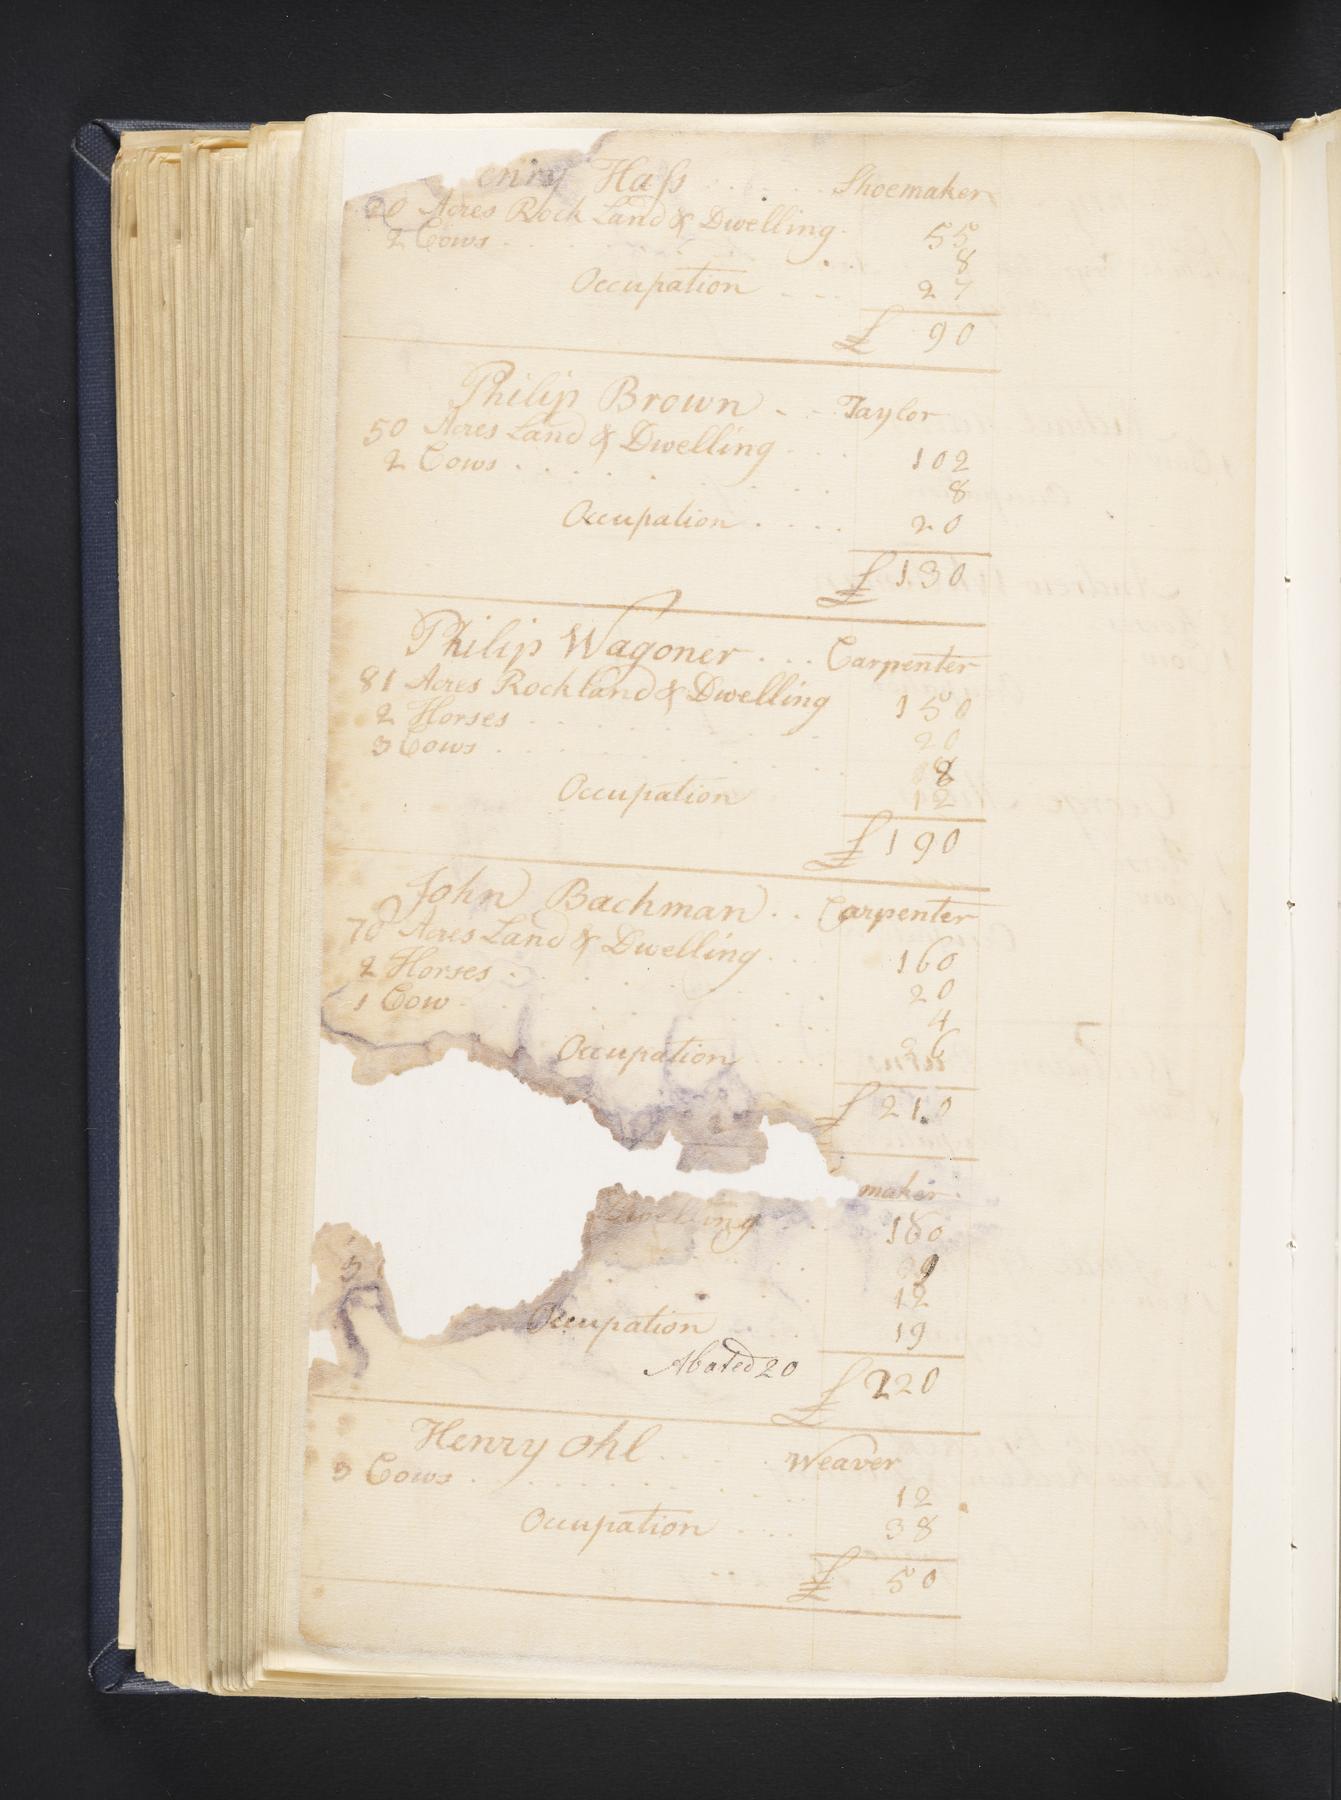 enry Haſs Shoemaker
20 Acres Rock Land & Dwelling 55
2 Cows 8
Occupation 27
£ 90
Philip Brown Taylor
50 Acres Land & Dwelling 102
2 Cows 8
Occupation 20
£ 130
Philip Wagoner Carpenter
81 Acres Rock Land & Dwelling 150
2 Horses 20
3 Cows 8
Occupation 12
£ 190
John Bachman Carpenter
70 Acres Land & Dwelling 160
2 Horses 20
1 Cow 4
Occupation
£ 210
maker
Dwelling 180
9
3 12
Occupation 19
Abated 20 £ 220
Henry Ohl Weaver
3 Cows 12
Occupation 38
£ 50